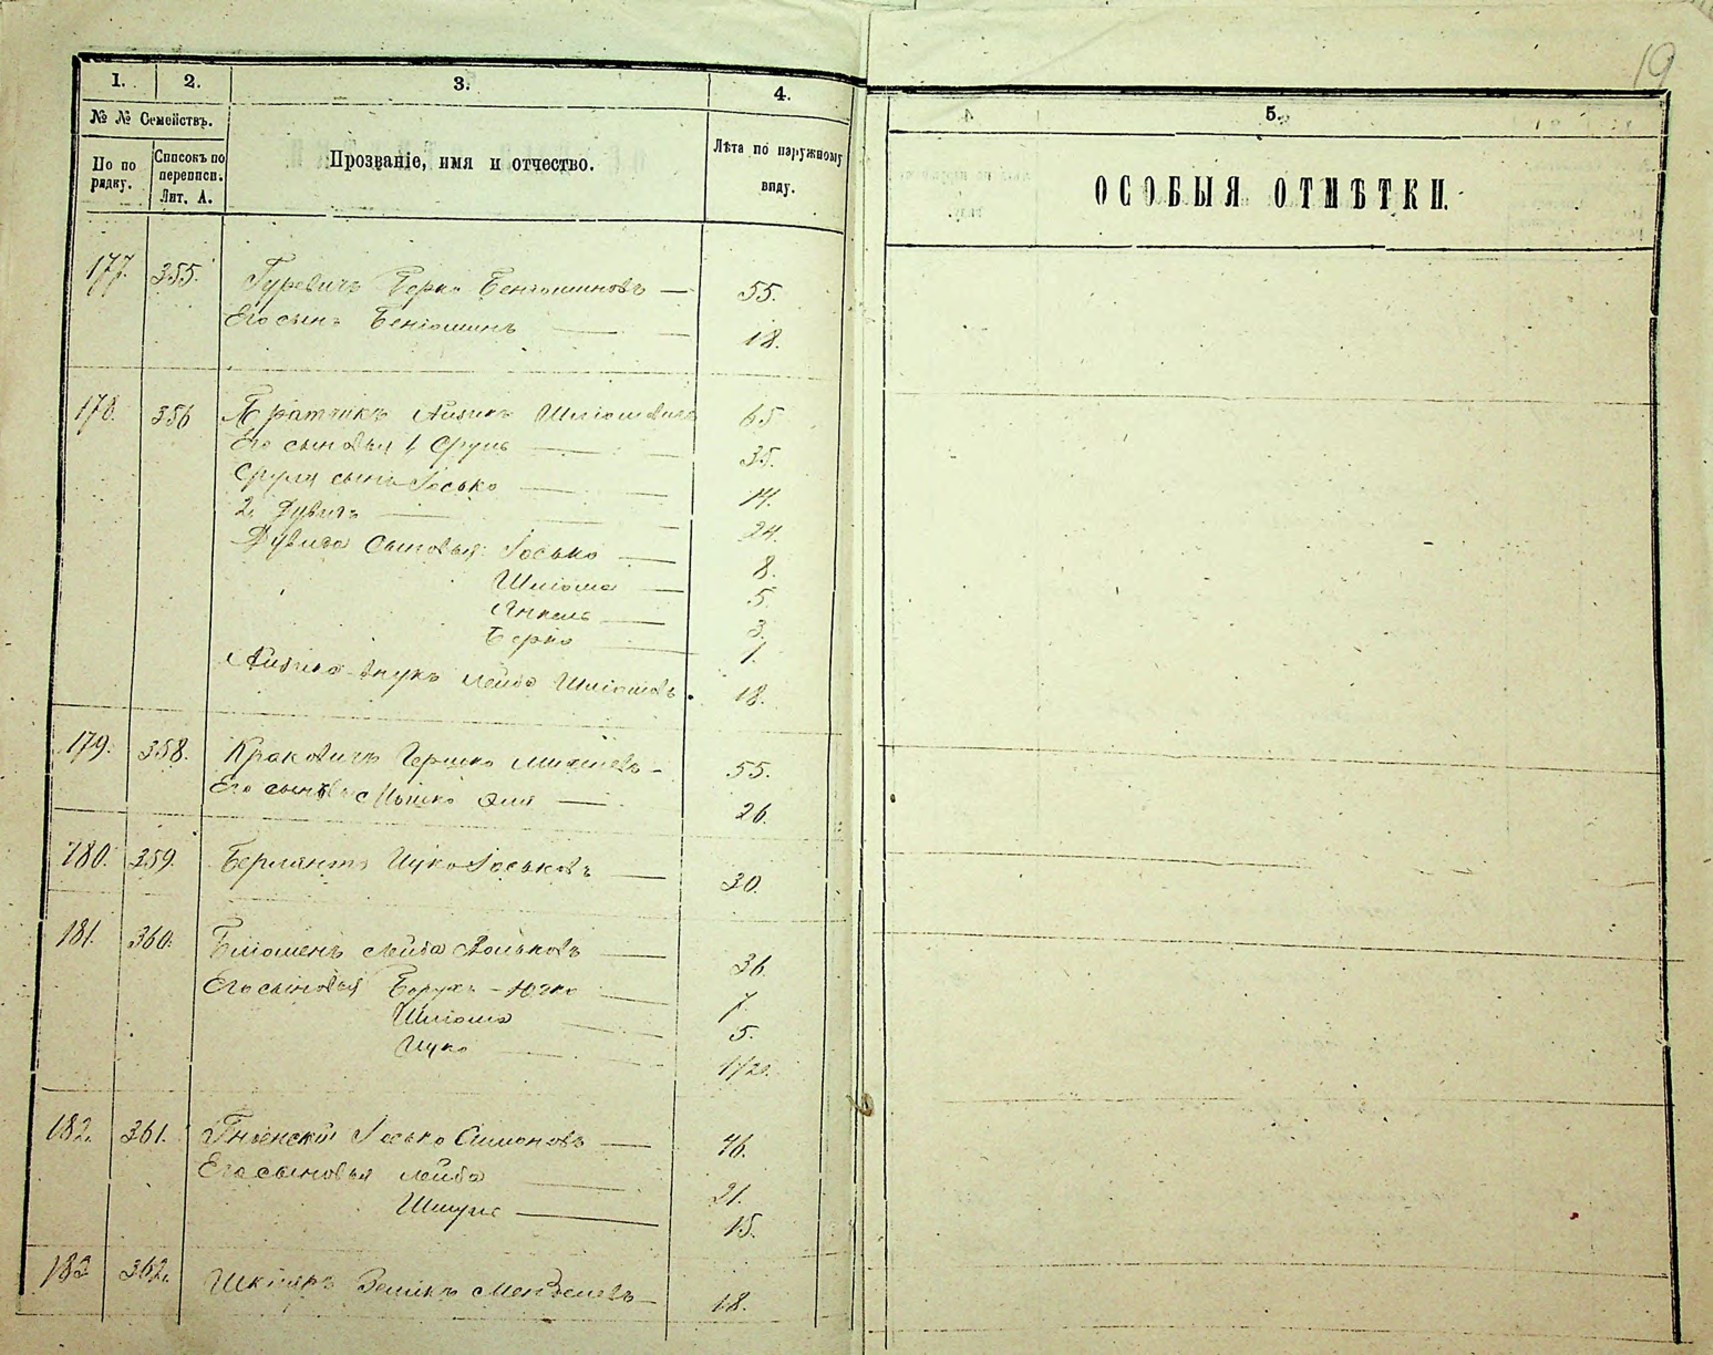 19
1. 2. 3. 4. 5.
№ № Семействъ.
По по рядку.
Списокъ по переписи. Лит. А.
Прозваніе, имя и отчество.
Лѣта по наружному виду.
ОСОБЫЯ ОТМѢТКИ.
177. 355. Гуревичъ Берко Беніоминовъ — 55.
Его сынъ Беніоминъ — 18.
178. 356 Айзикъ Шліомовичъ 65
Его сыновья 1 Сруль — 35.
Сруля сынъ Іосько — 14.
2. Дувидъ — 24.
Дувида сыновья: Іосько — 8.
Шліома — 5.
Янкель — 3.
Берко 1.
Айзика внукъ Лейба Шліомовъ. 18.
179. 358. Краковичъ Гершко 55.
Его сынъ Мошко — 26.
180. 359. Ицко Іоськовъ — 30.
181. 360. Лейба — 36.
Его сыновья Борухъ — 7
Шліома 5.
Ицко — 1/2.
182. 361. Іосько Симоновъ — 46.
Его сыновья Лейба 21.
Шмуль — 15.
183 362. Зеликъ Менделевъ — 18.